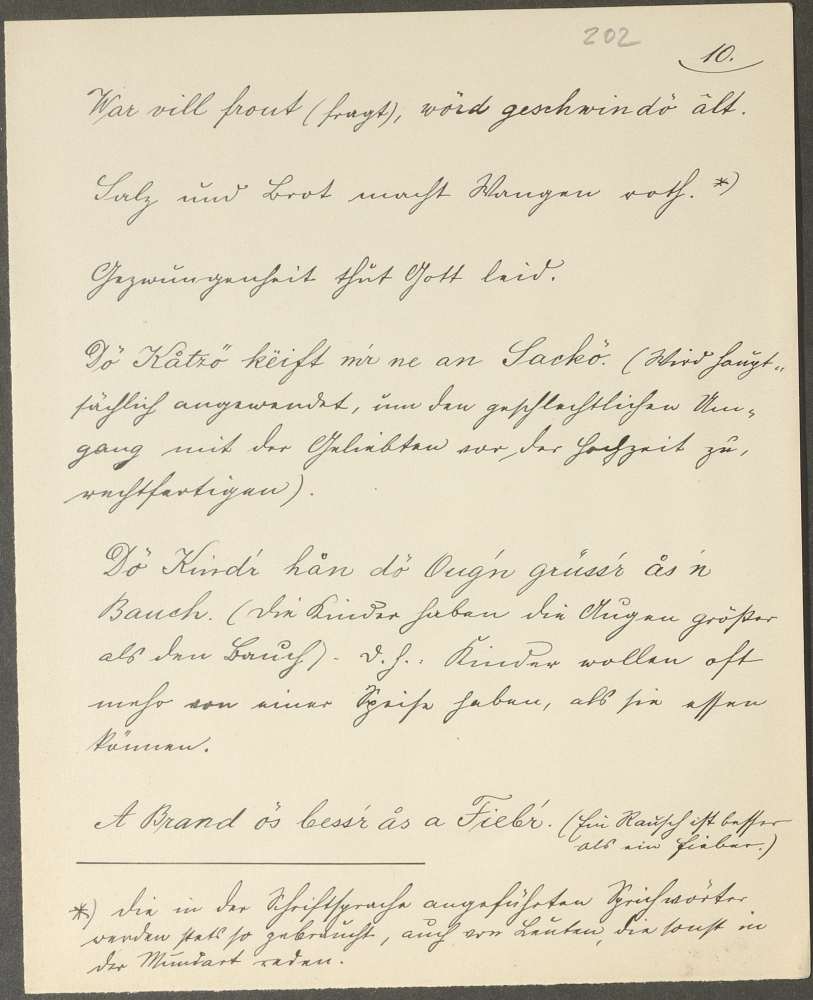 202
10.
War vill frout (fragt), wörd geschwindö ålt.
Salz und Brot macht Wangen roth. *)
Gezwungenheit thut Gott leid.
Dö Kåtzö këift m'r ne an Sackö. (Wird haupt-
sächlich angewendet, um den geschlechtlichen Um-
gang mit der Geliebten vor der Hochzeit zu
rechtfertigen).
Dö Kind'r hån dö Oug'n grüss'r ås 'n
Bauch. (Die Kinder haben die Augen größer
als den Bauch). D. h.: Kinder wollen oft
mehr von einer Speise haben, als sie essen
können.
A Brand ös bess'r ås a Fieb'r. (Ein Rausch ist besser
als ein Fieber.)
*) Die in der Schriftsprache angeführten Sprichwörter
werden stets so gebraucht, auch von Leuten, die sonst in
der Mundart reden.